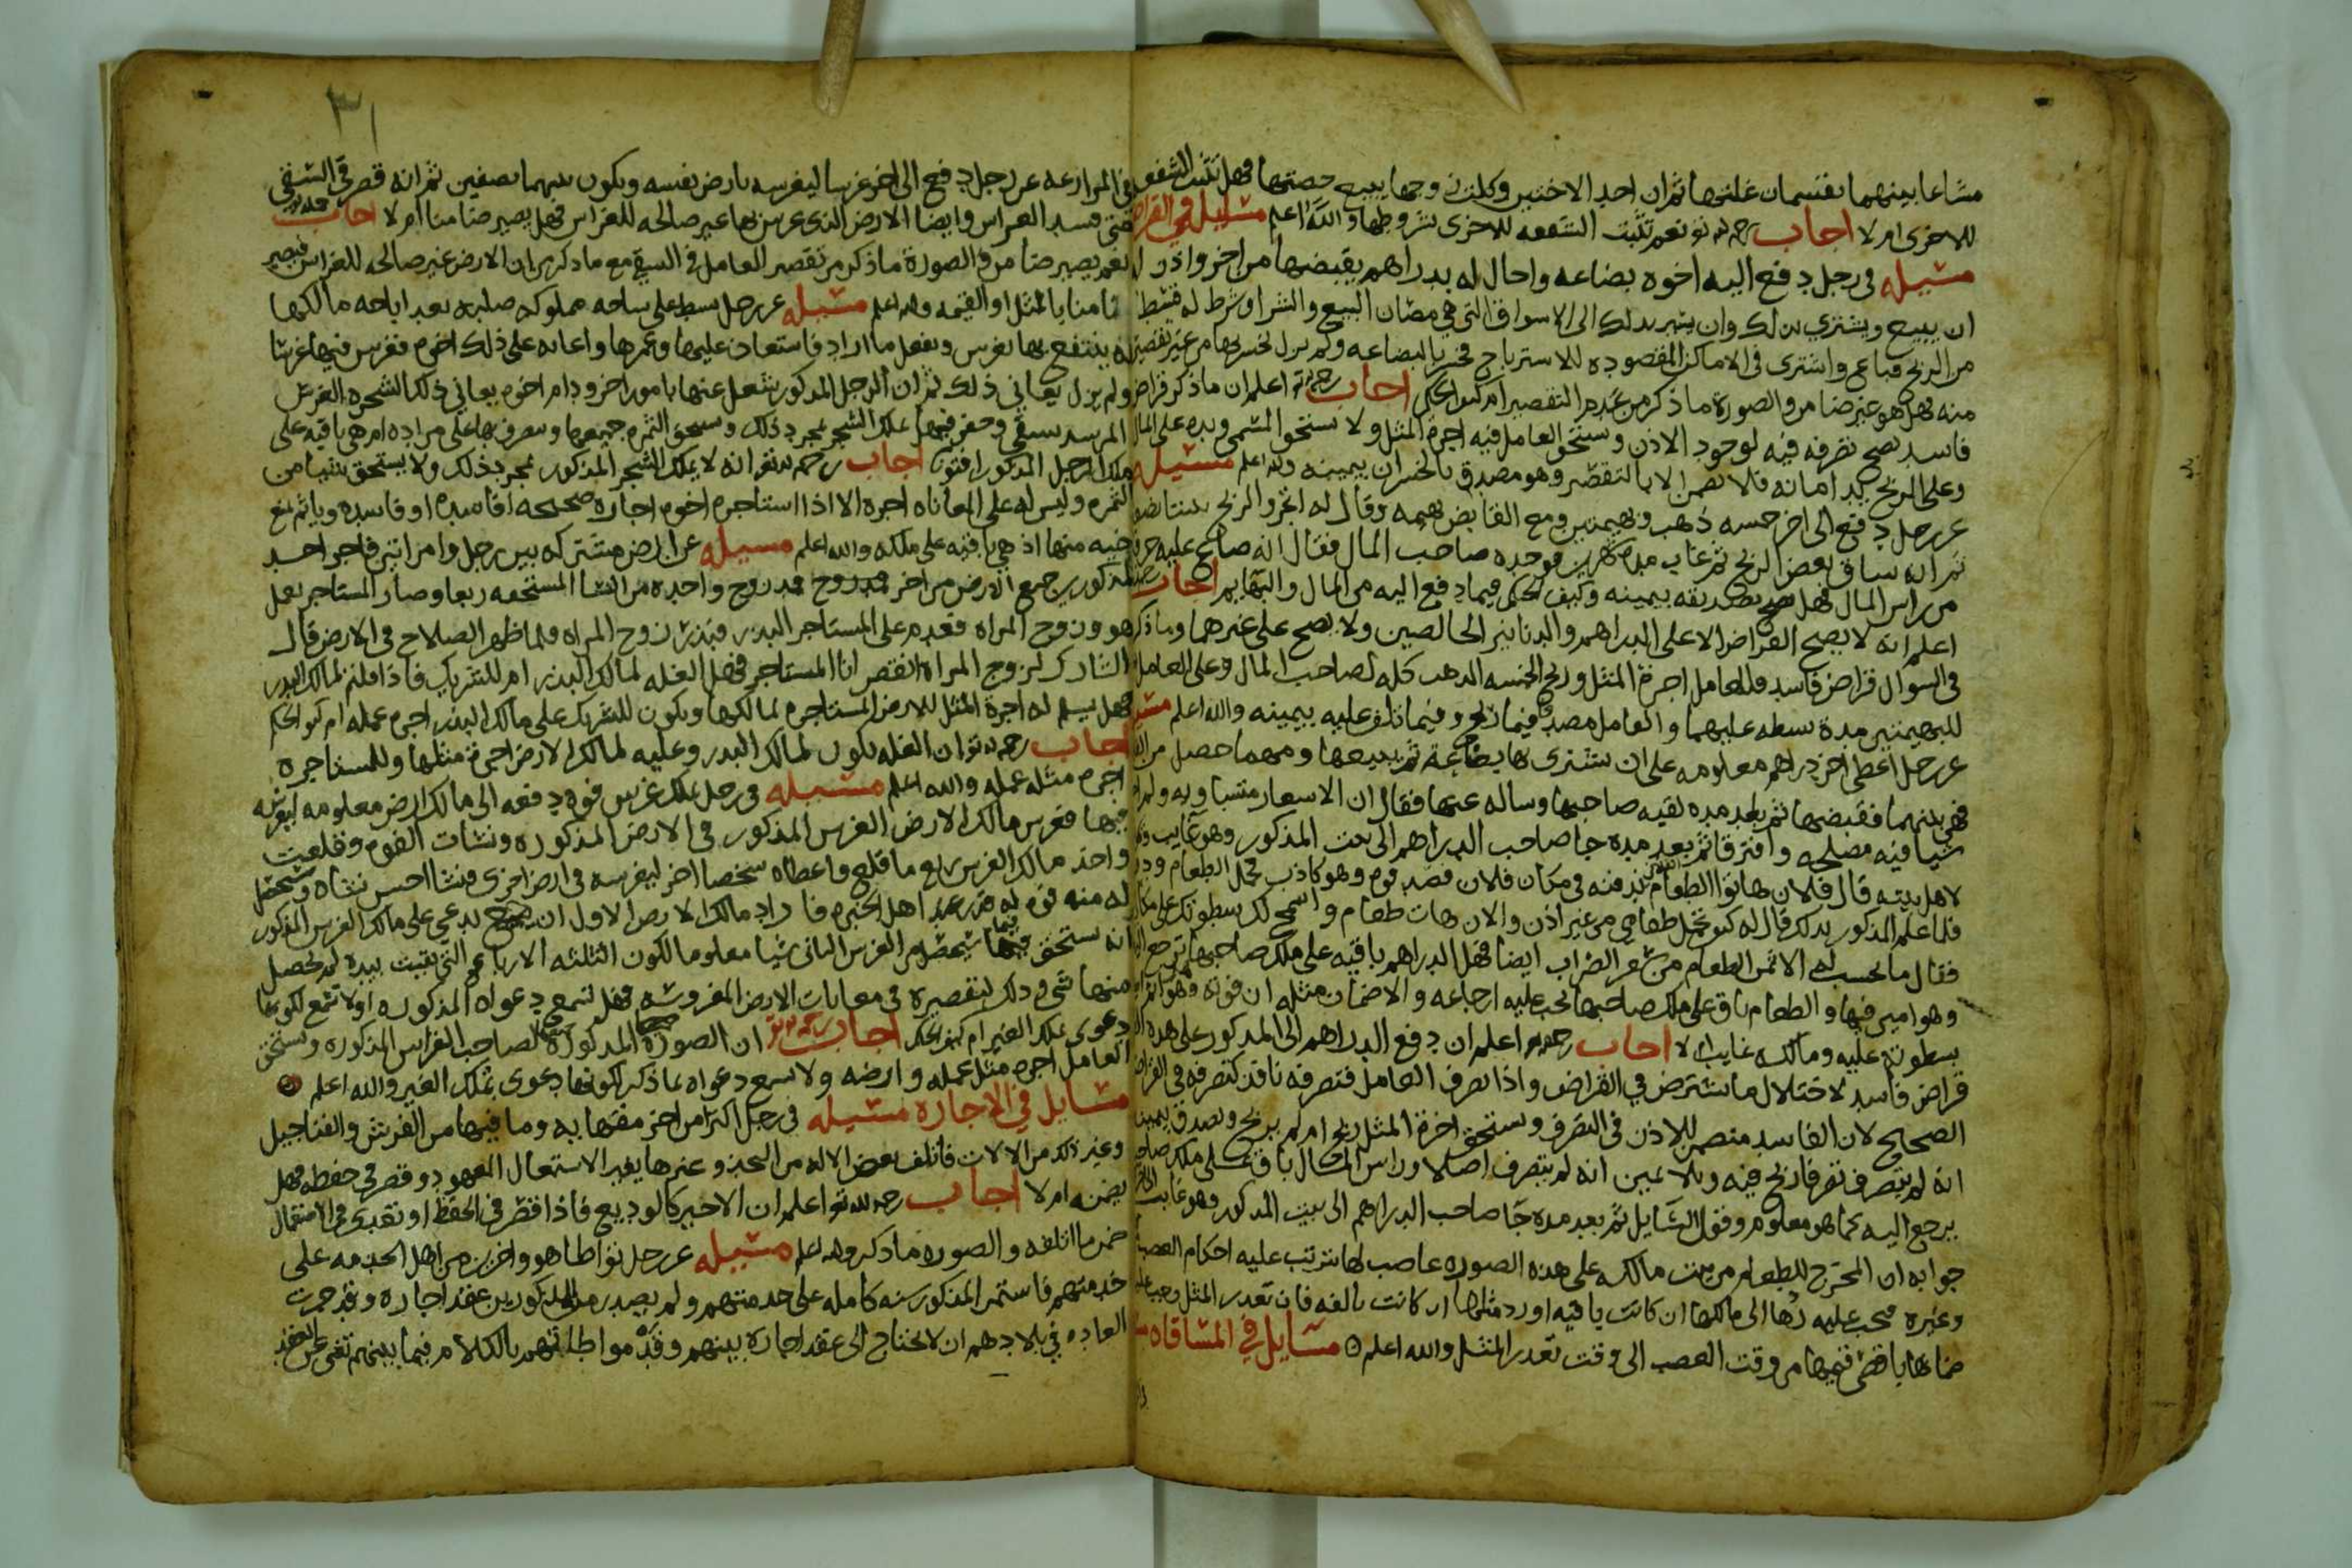 مشاعا بينهما يقتسمان غلتها ثم ان احد الاختين وكلت زوجها يبيع حصتها فهل تثبت الشفعه
للاخرى ام لا اجاب رحمه الله تعالى نعم تثبت الشفعه للاخرى بشروطها والله اعلم مسايل في القراض
مسيله في رجل دفع اليه اخوه بضاعه واحال له بدراهم يقبضها من اخر واذن له
ان يبيع ويشتري بذلك وان يسير بذلك الى الاسواق التي هي مضان البيع والشرا وشرط له قسطا
من الربح فباع واشترى في الاماكن المقصوده للاسترباح فخسر بالبضاعه ولم يزل يخسر بها من غير تقصير
منه فهل هو غير ضامن والصورة ما ذكر من عدم التقصير ام كيف الحكم اجاب رحمه الله اعلم ان ما ذكر قراض
فاسد يصح تصرفه فيه لوجود الاذن ويستحق العامل فيه اجرة المثل ولا يستحق المسمى ويده على المال
وعلى الربح يد امانه فلا يضمن الا بالتقصير وهو مصدق بالخسران بيمينه والله اعلم مسيله
عن رجل دفع الى اخر خمسه ذهب وبهيمتين ومع القابض بهيمه وقال له اتجر والربح بيننا
ثم انه ساق بعض الربح ثم غاب مده شهرين فوجده صاحب المال فقال انه ضاع عليه
من راس المال فهل يصح تصديقه بيمينه وكيف الحكم فيما دفع اليه من المال والبهايم اجاب
اعلم انه لا يصح القراض الا على الدراهم والدنانير الخالصين ولا يصح على غيرهما وما ذكر
في السوال قراض فاسد فللعامل اجرة المثل وربح الخمسه الذهب كله لصاحب المال وعلى العامل
للبهيمتين مدة بسطه عليهما والعامل مصدق فيما ربح وفيما تلف عليه بيمينه والله اعلم
عن رجل اعطى اخر دراهم معلومه على ان يشتري بها بضاعة ثم يبيعها ومهما حصل من
فهي بينهما فقبضها ثم بعد مده لقيه صاحبها وساله عنها فقال ان الاسعار متساويه ولم
شيا فيه مصلحه وافترقا ثم بعد مده جا صاحب الدراهم الى بيت المذكور وهو غايب
لاهل بيته قال فلان هاتوا الطعام الذي دفنه في مكان فلان قصد قوم وهو كاذب فحمل الطعام
فلما علم المذكور بذلك قال له كيف تحمل طعامي من غير اذن والان هات طعامي واسمح لك بسطوتك على
فقال ما نحسب لك الا ثمن الطعام من سعر الضراب ايضا فهل الدراهم باقيه على ملك صاحبها
وهو امين فيها والطعام باق على ملك صاحبها يجب عليه ارجاعه والا ضمان مثله ان فوته
بسطوته عليه ومالكه غايب ام لا اجاب رحمه الله اعلم ان دفع الدراهم الى المذكور على هذه
قراض فاسد لاختلال ما يشترط في القراض واذا تصرف العامل فتصرفه نافذ كتصرفه في القراض
الصحيح لان الفاسد متضمن للاذن في التصرف ويستحق اجرة المثل ربح ام لم يربح ويصدق بيمينه
انه لم يتصرف تصرفا ربح فيه وبلا يمين انه لم يتصرف اصلا وراس المال باق على ملك
يرجع اليه كما هو معلوم وقول السايل ثم بعد مده جا صاحب الدراهم الى بيت المذكور وهو غايب
جوابه ان المخرج للطعام من بيت مالكه على هذه الصوره غاصب لها يترتب عليه احكام الغصب
وغيره فيجب عليه ردها الى مالكها ان كانت باقيه او رد مثلها ان كانت تالفه فان تعذر المثل
ضمانها باقصى قيمها من وقت الغصب الى وقت تعذر المثل والله اعلم مسايل في المساقاه
٣١
في المزارعه عن رجل دفع الى اخر غرسا ليغرسه بارض نفسه ويكون بينهما نصفين ثم انه قصر في السقي
حتى فسد الغراس وايضا الارض الذي غرس بها غير صالحه للغراس فهل يصير ضامنا ام لا اجاب
نعم يصير ضامن والصورة ما ذكر من تقصير العامل في السقي مع ما ذكر من ان الارض غير صالحه للغراس فيصير
ضامنا بالمثل او القيمه والله اعلم مسيله عن رجل بسط على ساحه مملوكه بعد اباحه مالكها
له ينتفع بها بغرس ويفعل ما اراد فاستعان عليها وعمرها واعانه على ذلك اخوه فغرس فيها غرسا
ولم يزل يعاني ذلك ثم ان الرجل المذكور شغل عنها بامور اخر ودام اخوه يعاني ذلك الشجره
فهل يملك الشجر بمجرد ذلك ويستحق الثمره جميعها ويصرف بها على مراده ام هي باقيه على
ملك الرجل المذكور افتونا اجاب رحمه الله تعالى انه لا يملك الشجر المذكور بمجرد ذلك ولا يستحق شيا من
الثمره وليس له على المعاناه اجره الا اذا استاجره اخوه اجاره صحيحه او فاسده وياثم بمنع
اخيه منها اذ هي باقيه على ملكه والله اعلم مسيله عن ارض مشتركه بين رجل وامراتين فاجر احد
المذكورين جميع الارض من اخر زوج واحده من النسا المستحقه ربعا وصار المستاجر يعمل
هو وزوج المراه فعدم على المستاجر البذر فبذر زوج المراه فلما ظهر الصلاح في الارض قال
الشارك لزوج المراه انا المستاجر فهل الغله لمالك البذر ام للشريك فاذا قلتم لمالك البذر
فهل يسلم له اجرة المثل للارض المستاجره لمالكها ويكون للشريك على مالك البذر اجره عمله ام كيف الحكم
اجاب رحمه الله تعالى ان الغله تكون لمالك البذر وعليه لمالك الارض اجرة مثلها وللمستاجر
اجره مثله عمله والله اعلم مسيله في رجل ملك غرس فوه دفعه الى مالك ارض معلومه ليغرسه
فيها فغرس مالك الارض الغرس المذكور في الارض المذكوره ونشات الفوه وقلعت
واخذ مالك الغرس ربع ما قلع واعطاه شخصا اخر ليغرسه في ارض اخرى فنشا احسن نشاه
له منه فوه اهل الخبره فاراد مالك الارض الاول ان يدعي على مالك الغرس المذكور
انه يستحق فيما تحصل من الغرس الثاني شيا معلوما لكون الثلثه الارباع التي بقيت بيده لم يحصل
منها شي وذلك لتقصيره في معانات الارض المغروسه فهل تسمع دعواه المذكوره او لا تسمع لكونها
دعوى بملك الغير ام كيف الحكم اجاب رحمه الله تعالى ان الصورة المذكورة لصاحب الغراس المذكوره ويستحق
العامل اجرة مثل عمله وارضه ولا تسمع دعواه بما ذكر لكونها دعوى بملك الغير والله اعلم
مسايل في الاجاره مسيله في رجل اكترا من اخر مقهايه وما فيها من الفرش والفناجيل
وغير ذلك من الالات فاتلف بعض الاله من وغيرها بغير الاستعمال المعهود وقصر في حفظه فهل
يضمنه ام لا اجاب رحمه الله تعالى اعلم ان الاجير كالوديع فاذا قصر في الحفظ او تعدى في الاستعمال
ضمن ما اتلفه والصوره ما ذكر والله اعلم مسيله عن رجل تواطا هو واخرين من اهل الخدمه على
خدمتهم فاستمر المذكور سنه كامله على خدمتهم ولم يصدر من المذكورين عقد اجاره وقد جرت
العاده في بلادهم ان لا يحتاج الى عقد اجاره بينهم وقد مواطاتهم بالكلام فيما بينهم تغني عن العقد